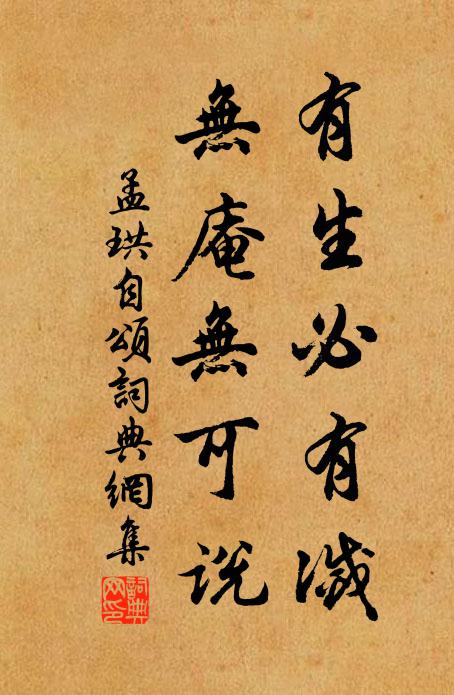 有生必有滅
無庵無可說
孟珙自頌詞典網集
詞典
网印